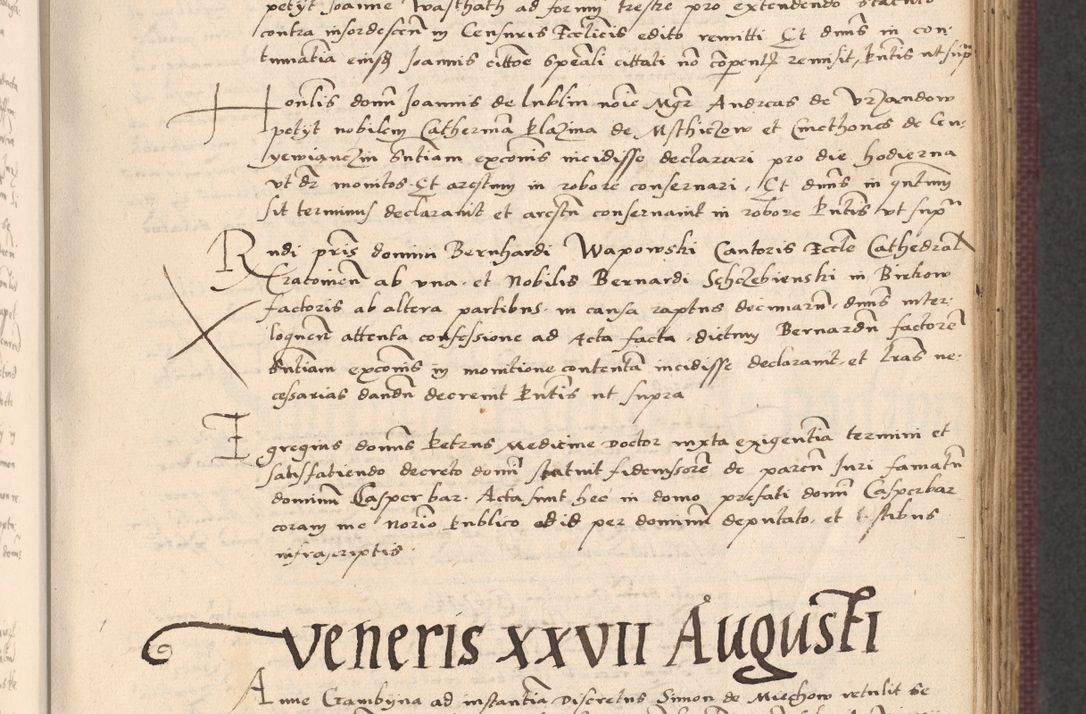 petijt Joanne Wasthath ad formam trestre pro extendendo statuto
contra insordescen in Censuris Ecclicis edito remitti Et dnus in con-
tumatia eiusq Joannis cittoe speali cittati no copentq remisit, pntis ut sup
Honlis domi Joannis de lublin noie Mgr Andreas de Urzandow
petijt nobilem Catherina klazina de Msthiczow et Cmethones de Cen-
yewianczin sntiam exconis incidisse declarari pro die hodierna
ut dr monitos Et arestum in robore conservari, Et dnus in qntum
sit terminus declaravit et arestu conservavit in robore pntis ut supra
Rndi pris domini Bernhardi Wapowski Cantoris Eccle Cathedral
Cracovien ab una et Nobilis Bernardi Schczebienski in Birkow
factoris ab altera partibus in causa raptus decimaru dnus inter-
loquen attenta confessione ad Acta facta dictum Bernardu factore
sntiam exconis in monitione contenta incidisse declaravit et lras ne-
cessarias dandu decrevit pntis ut supra
Egregius domus petrus Medicine Doctor iuxta exigentia termini et
satisfatiendo decreto domi statuit fideiussore de paren Juri famatu
dominu Casper bar. Acta sunt hec in domo prefati domi Casperbar
coram me Norio publico ad id per dominum deputato, et testibus
infrascriptis
Veneris XXVII Augusti
Anne Grambijna ad instantia Discretus Simon de Miechow retulit se